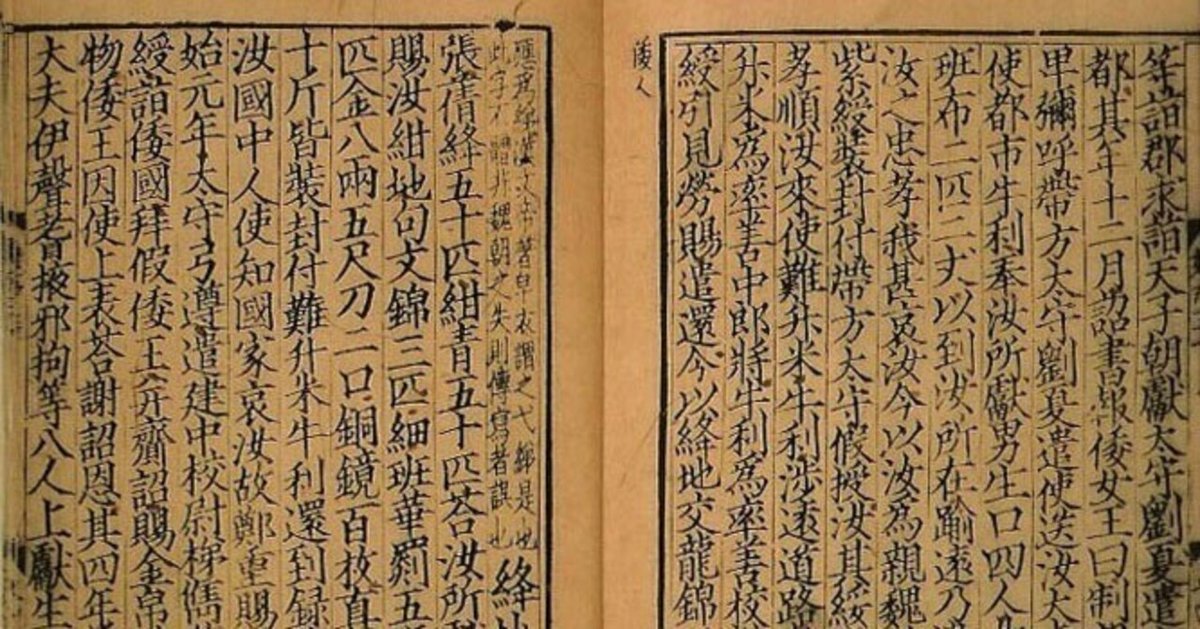 等詣郡求詣天子朝獻太守劉夏遣
都其年十二月詔書報倭女王曰制
卑彌呼帶方太守劉夏遣使送汝大
使都市牛利奉汝所獻男生口四人
班布二匹二丈以到汝所在踰遠乃
汝之忠孝我甚哀汝今以汝爲親魏
紫綬裝封付帶方太守假授汝其綏
孝順汝來使難升米牛利涉遠道路
升米爲率善中郎將牛利爲率善校
綬引見勞賜遣還今以絳地交龍錦
應爲綈漢文帝著皁衣謂之弋綈是也
此字不體非魏朝之失則傳寫者誤也
絳地
張蒨絳五十匹紺青五十匹荅汝所
賜汝紺地句文錦三匹細班華罽五
匹金八兩五尺刀二口銅鏡百枚真
十斤皆裝封付難升米牛利還到録
汝國中人使知國家哀汝故鄭重賜
始元年太守弓遵遣建中校尉梯儁
綬詣倭國拜假倭王并齎詔賜金帛
物倭王因使上表荅謝詔恩其四年
大夫伊聲耆掖邪狗等八人上獻生